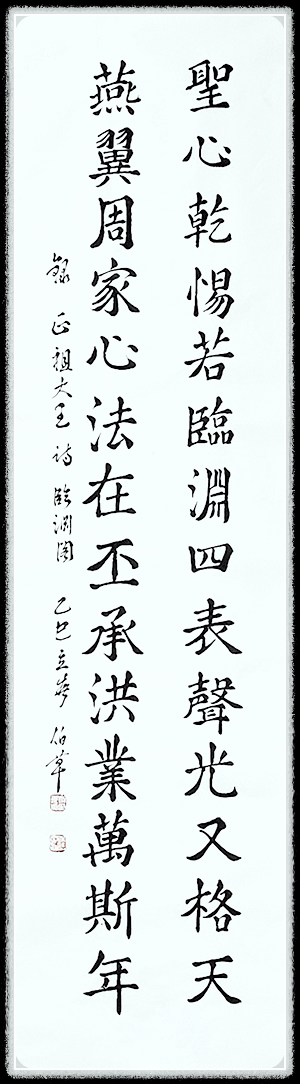 聖心乾惕若臨淵四表聲光又格天
燕翼周家心法在丕承洪業萬斯年
錄 正祖大王 詩 臨淵閣 乙巳立春 伯草